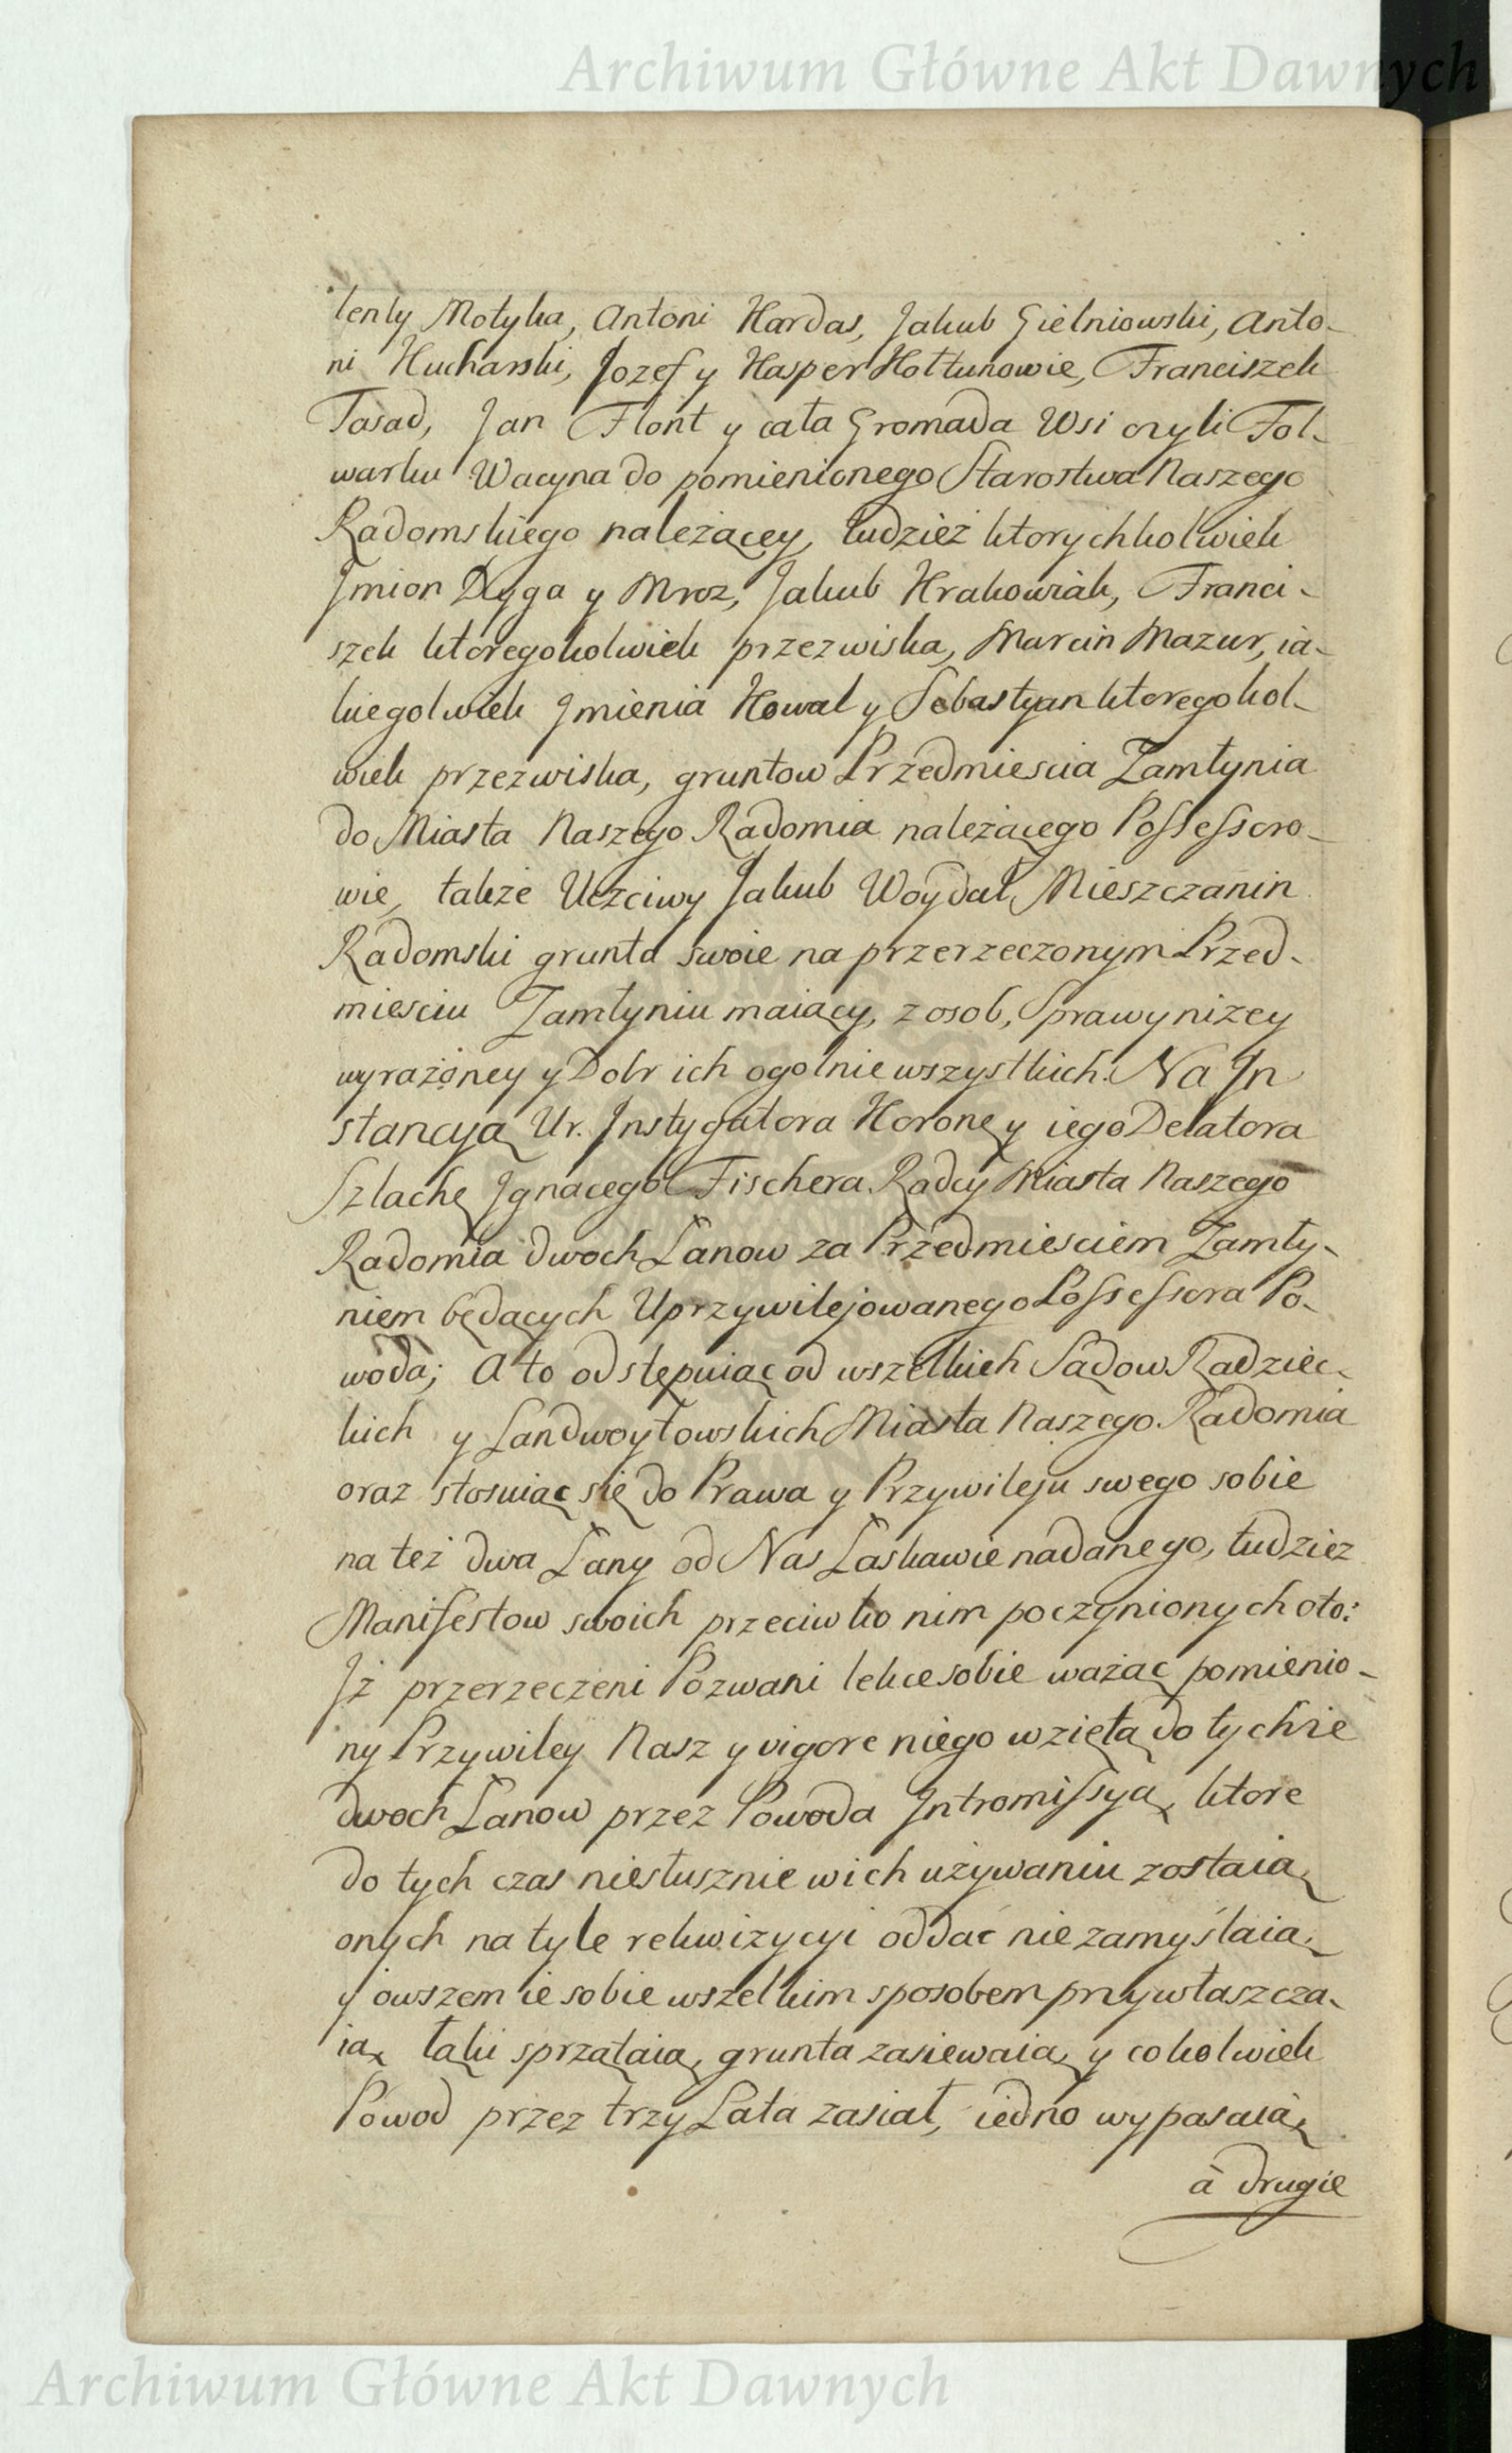 Archiwum Główne Akt Dawnych
lenty Motyka, Antoni Kardas, Jakub Gielniowski, Anto-
ni Kucharski, Jozef y Kasper Kołtunowie, Franciszek
Tasad, Jan Flont y cała Gromada Wsi czyli Fol-
warku Wacyna do pomienionego Starostwa Naszego
Radomskiego należącey, tudzież ktorychkolwiek
Jmion Dyga y Mroz, Jakub Krakowiak, Franci-
szek ktoregokolwiek przezwiska, Marcin Mazur, ia-
kiegolwiek Jmienia Kowal y Sebastyan ktoregokol-
wiek przezwiska, gruntow Przedmiescia Zamłynia
do Miasta Naszego Radomia należącego Possessoro-
wie, także Uczciwy Jakub Woydał, Mieszczanin
Radomski grunta swoie na przerzeczonym Przed-
miesciu Zamłyniu maiący, z osob, Sprawy niżey
wyrażoney y Dobr ich ogolnie wszystkich. Na Jn
stancyą Ur. Jnstygatora Koronę y iego Delatora
Szlachę Jgnacego Fischera Radcy Miasta Naszego
Radomia dwoch Łanow za Przedmiesciem Zamły-
niem będących Uprzywilejowanego Possessora Po-
woda; A to odstępuiąc od wszelkich Sądow Radziec-
kich y Landwoytowskich Miasta Naszego Radomia
oraz stosuiąc się do Prawa y Przywileju swego sobie
na też dwa Łany od Nas Łaskawie nadanego, tudzież
Manifestow swoich przeciwko nim poczynionych oto:
Jż przerzeczeni Pozwani lekce sobie ważąc pomienio-
ny Przywiley Nasz y vigore niego wziętą do tychże
dwoch Łanow przez Powoda Jntromissyą, ktore
do tych czas niesłusznie w ich używaniu zostaią,
onych na tyle rekwizycyi oddać nie zamyślaią,
y owszem ie sobie wszelkim sposobem przywłaszcza-
ią, łąki sprzątaią, grunta zasiewaią, y cokolwiek
Powod przez trzy Lata zasiał, iedno wypasaią,
à drugie
Archiwum Główne Akt Dawnych